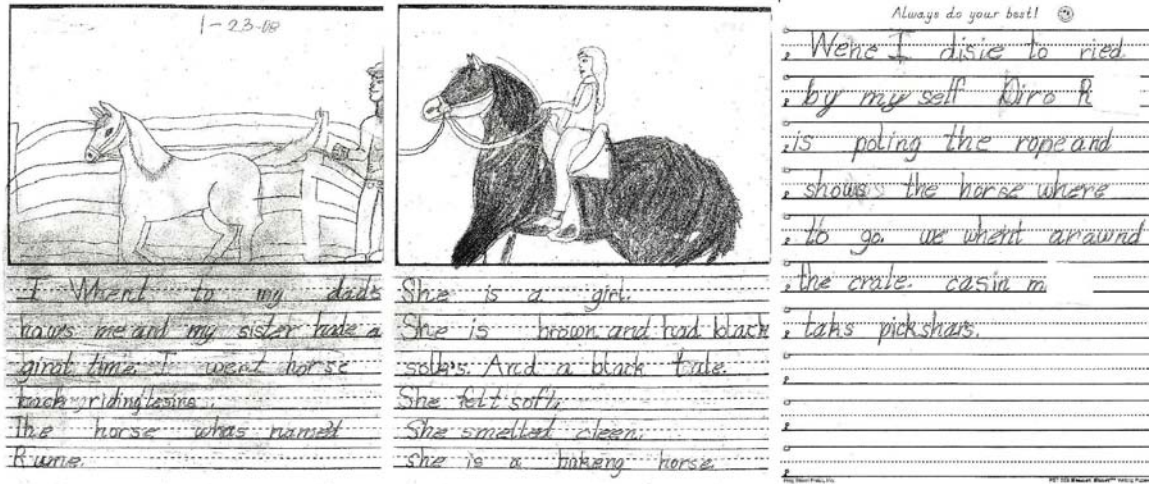 1-23-08
I Whent to my dads
haws me and my sister hade a
girat time. I went horse
back riding lesins.
The horse whas named
Rume.
She is a girl.
She is brown and had black
solk's. And a black tale.
She felt soft.
She smelled cleen.
she is a bakeng horse.
Always do your best!
Wene I disie to ried
by my self Diro R
is poling the rope and
shows the horse where
to go. we whent arawnd
the crale. casin m
taks pickshars.